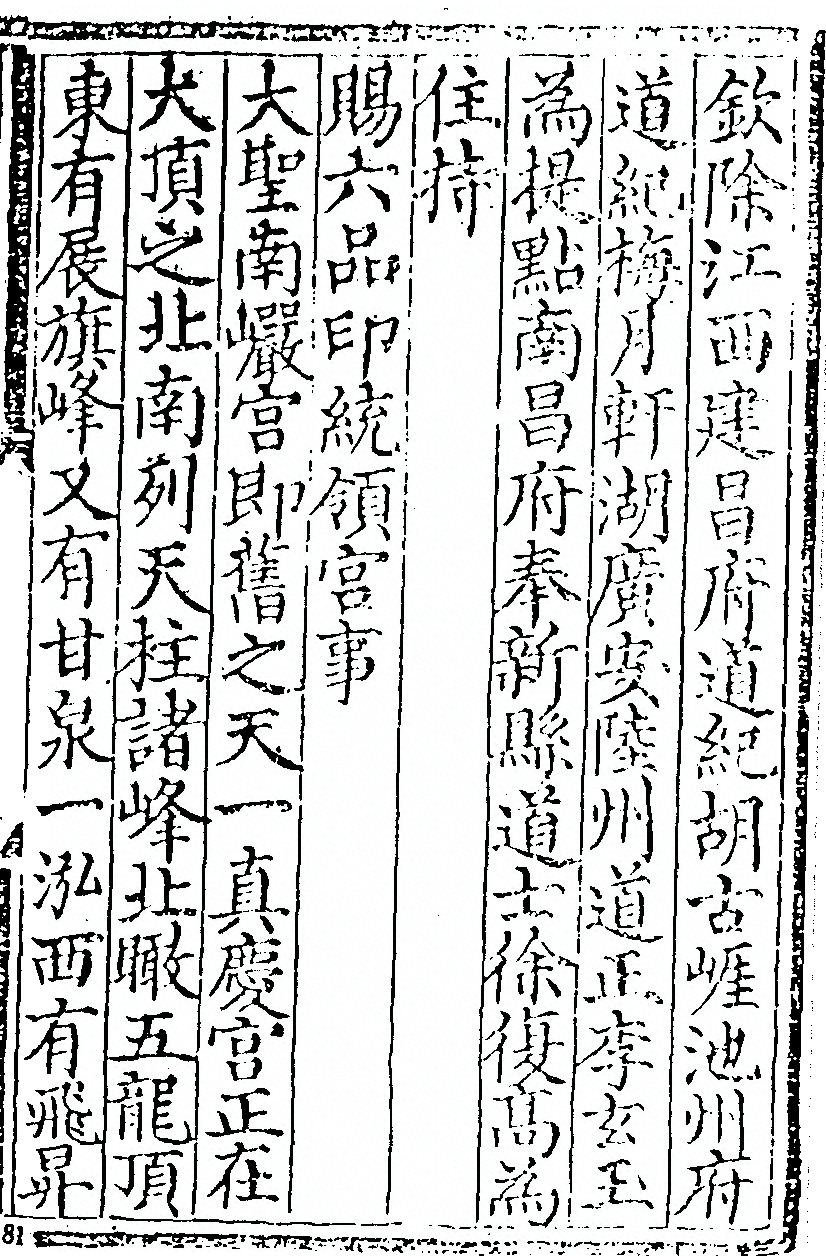 欽除江西建昌府道紀胡古崕池州府
道紀梅月軒湖廣安陸州道正李玄玉
為提點南昌府奉新縣道士徐復高為
住持
賜六品印統領宮事
大聖南巖宮即舊之天一真慶宮正在
大頂之北南列天柱諸峰北瞰五龍頂
東有展旗峰又有甘泉一泓西有飛昇
81